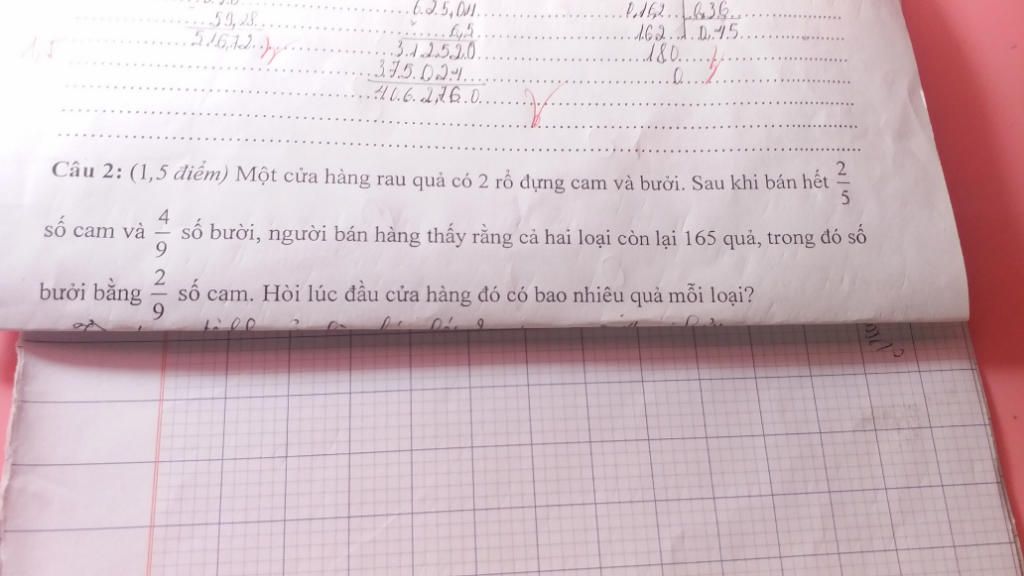 59,28
516,72
1,5
625,04
6,5
312520
375024
406 2,76 0
0,162 0,36
162 0,45
180
0
Câu 2: (1,5 điểm) Một cửa hàng rau quả có 2 rổ đựng cam và bưởi. Sau khi bán hết 2/5
số cam và 4/9 số bưởi, người bán hàng thấy rằng cả hai loại còn lại 165 quả, trong đó số
bưởi bằng 2/9 số cam. Hỏi lúc đầu cửa hàng đó có bao nhiêu quả mỗi loại?